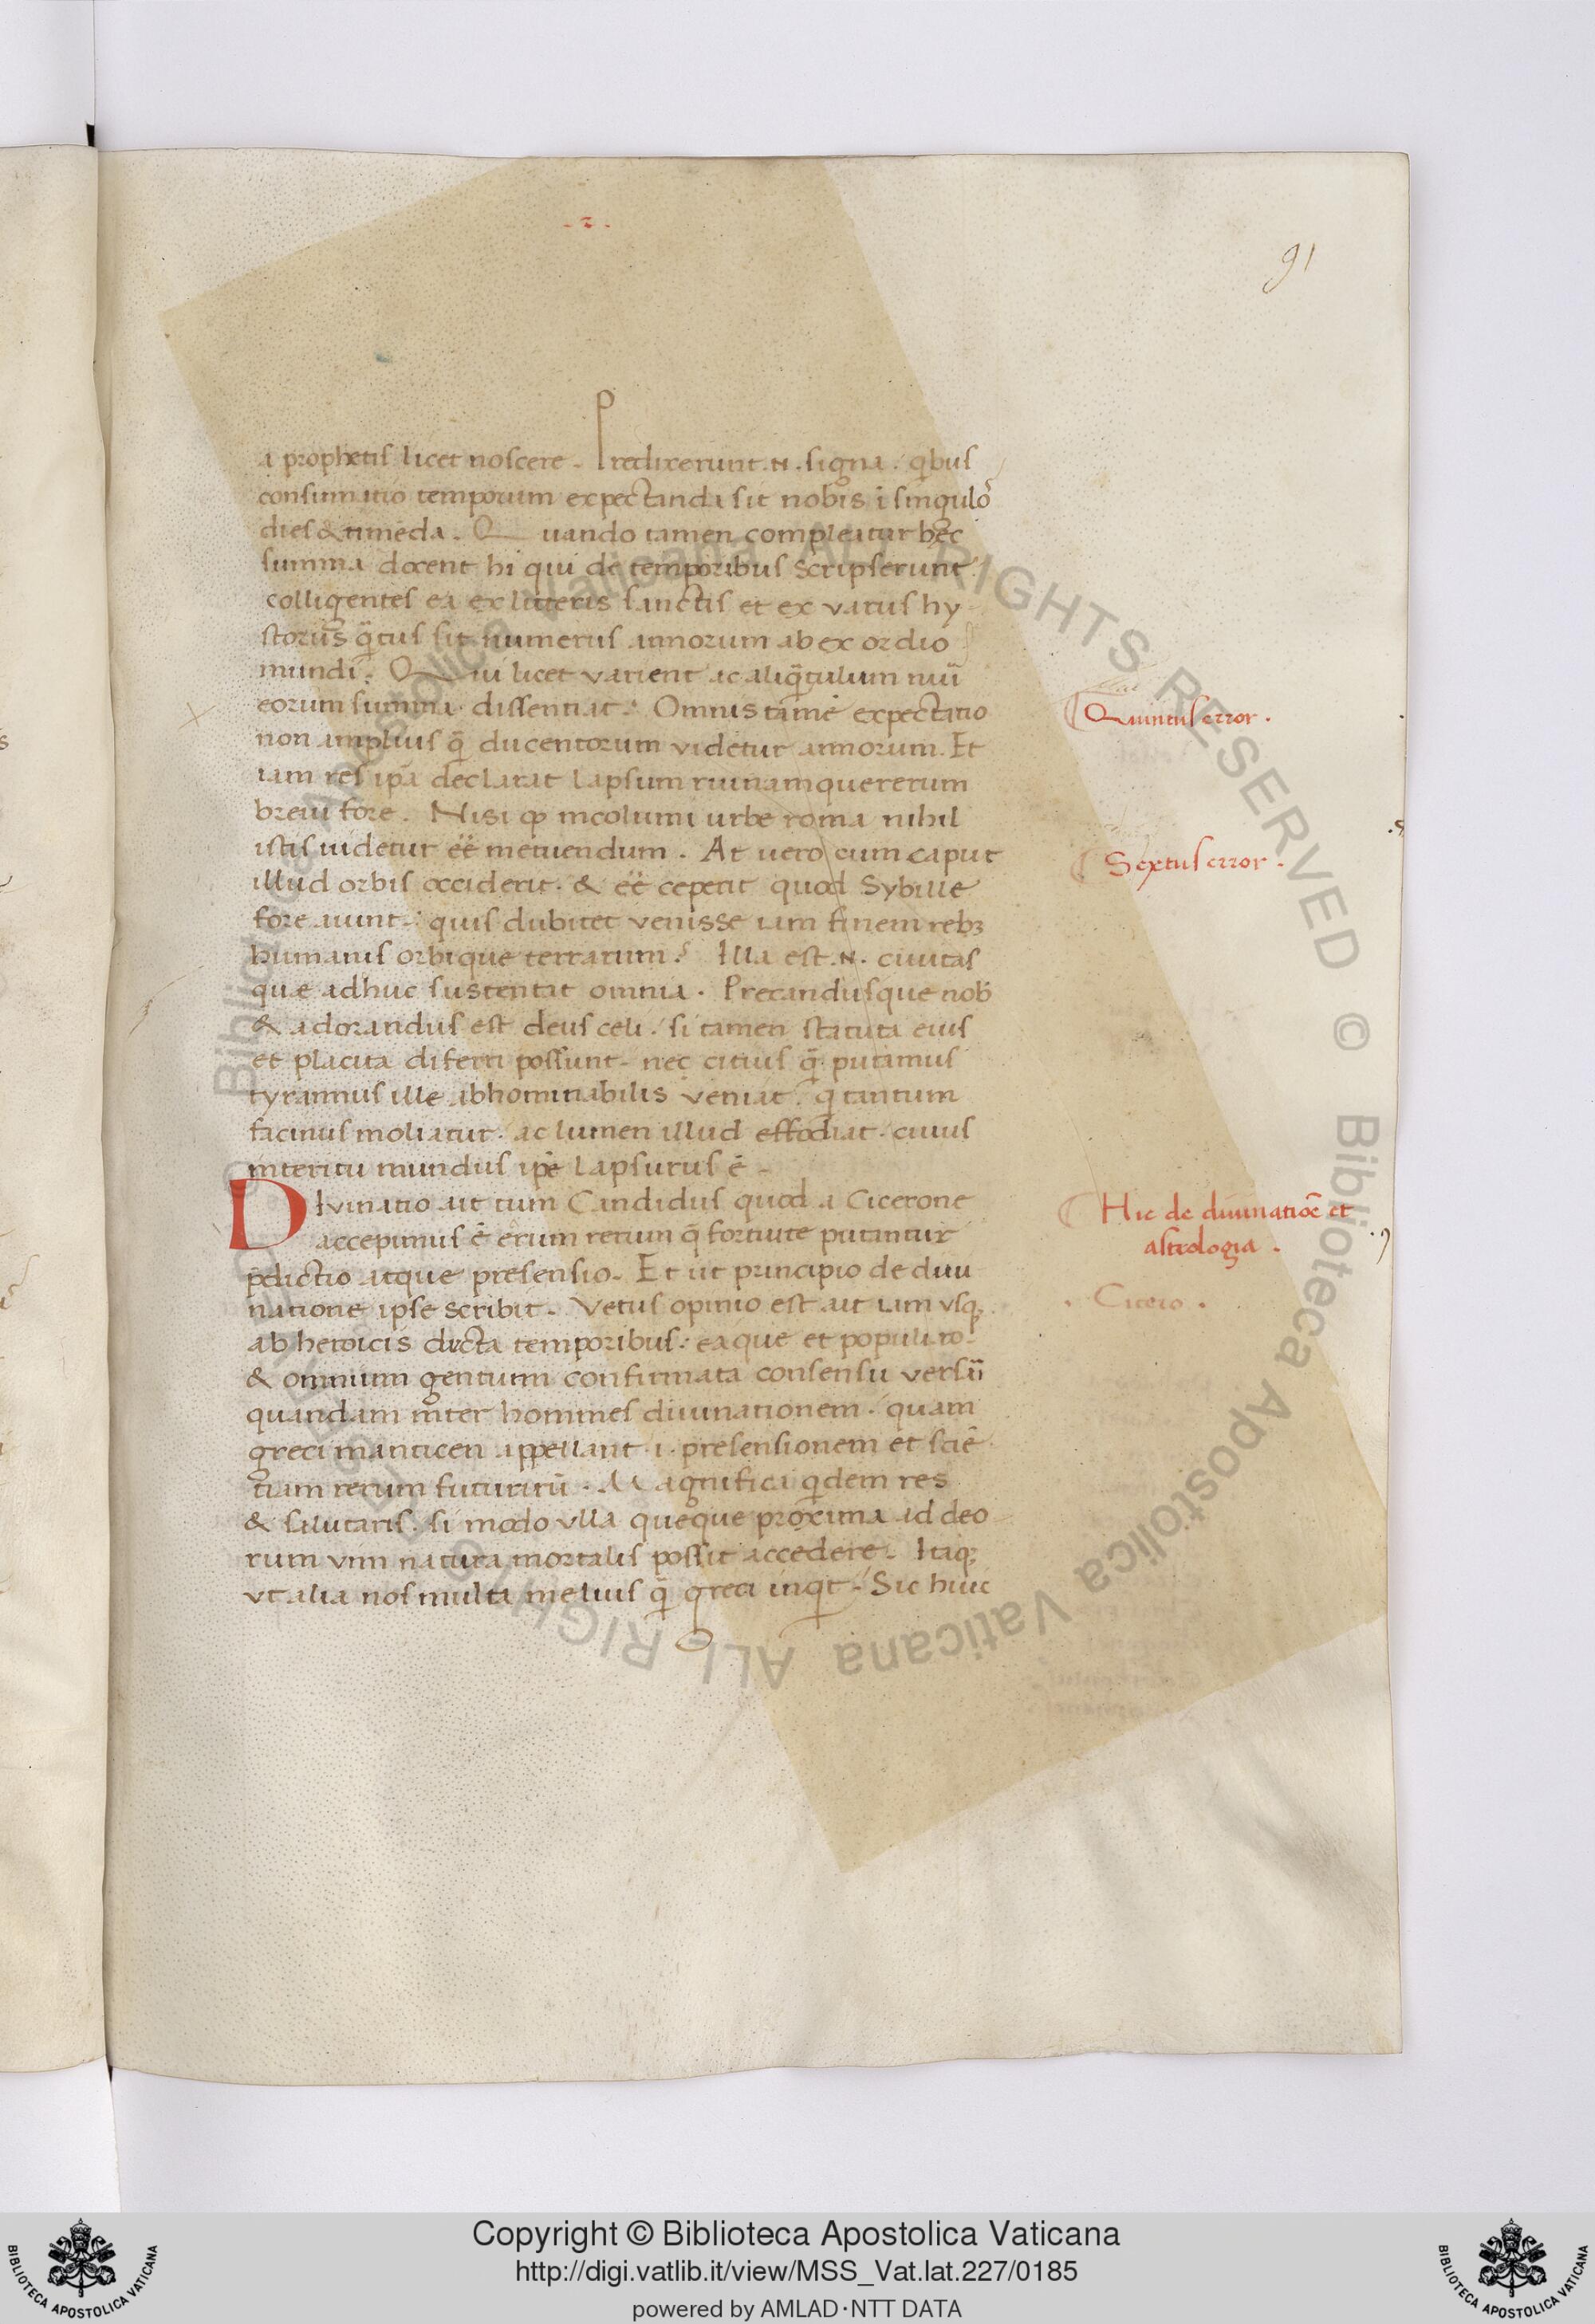 .2.
91
a prophetis licet noscere. Predixerunt .N. signa. qibus
consumatio temporum expectanda sit nobis ī singulo᷒
dies & timēda. Quando tamen compleatur hęc
summa docent hi qui de temporibus scripserunt
colligentes ea ex litteris sanctis et ex variis hy
storiis q̄tus sit numerus annorum ab exordio
mundi. Qui licet varient ac aliq̄tulum nūi
eorum summa dissentiat. Omnis tamē expectatio
non amplius q̄ ducentorum videtur annorum. Et
iam res ip̄a declarat lapsum ruinamque rerum
breui fore. Nisi qp incolumi urbe roma nihil
istis uidetur ēē metuendum. At uero cum caput
illud orbis occiderit. & ēē ceperit quod Sybille
fore aiunt: quis dubitet venisse iam finem rebꝫ
humanis orbique terrarum? Illa est .N. ciuitas
quæ adhuc sustentat omnia. Precandusque nob̄
& adorandus est deus celi. si tamen statuta eius
et placita diferri possunt. nec citius q̄ putamus
tyrannus ille abhominabilis veniat. q tantum
facinus moliatur. ac lumen illud effodiat. cuius
interitu mundus ip̄e lapsurus ē.
Divinatio ait tum Candidus quod a Cicerone
accepimus ē erum rerum q̄ fortuite putantur
p̄dictio atque presensio. Et ut principio de diui
natione ipse scribit. Vetus opinio est ait iam vsqꝫ
ab heroicis dicta temporibus: eaque et populi ro.
& omnium gentium confirmata consensu versari
quandam inter homines diuinationem. quam
greci manticen appellant .i. presensionem et sciē
tiam rerum futurarū. Magnifica qidem res
& salutaris. si modo vlla queque proxima ad deo
rum vim natura mortalis possit accedere. Itaqꝫ
vt alia nos multa melius q̄ greci inqit. Sic huic
Quintus error.
Sextus error.
Hic de diuinatiōe et
astrologia.
. Cicero .
Copyright © Biblioteca Apostolica Vaticana
http://digi.vatlib.it/view/MSS_Vat.lat.227/0185
powered by AMLAD·NTT DATA
BIBLIOTECA APOSTOLICA VATICANA
BIBLIOTECA APOSTOLICA VATICANA
Biblioteca Apostolica Vaticana ALL RIGHTS RESERVED © Biblioteca Apostolica Vaticana ALL RIGHTS RESERVED ©